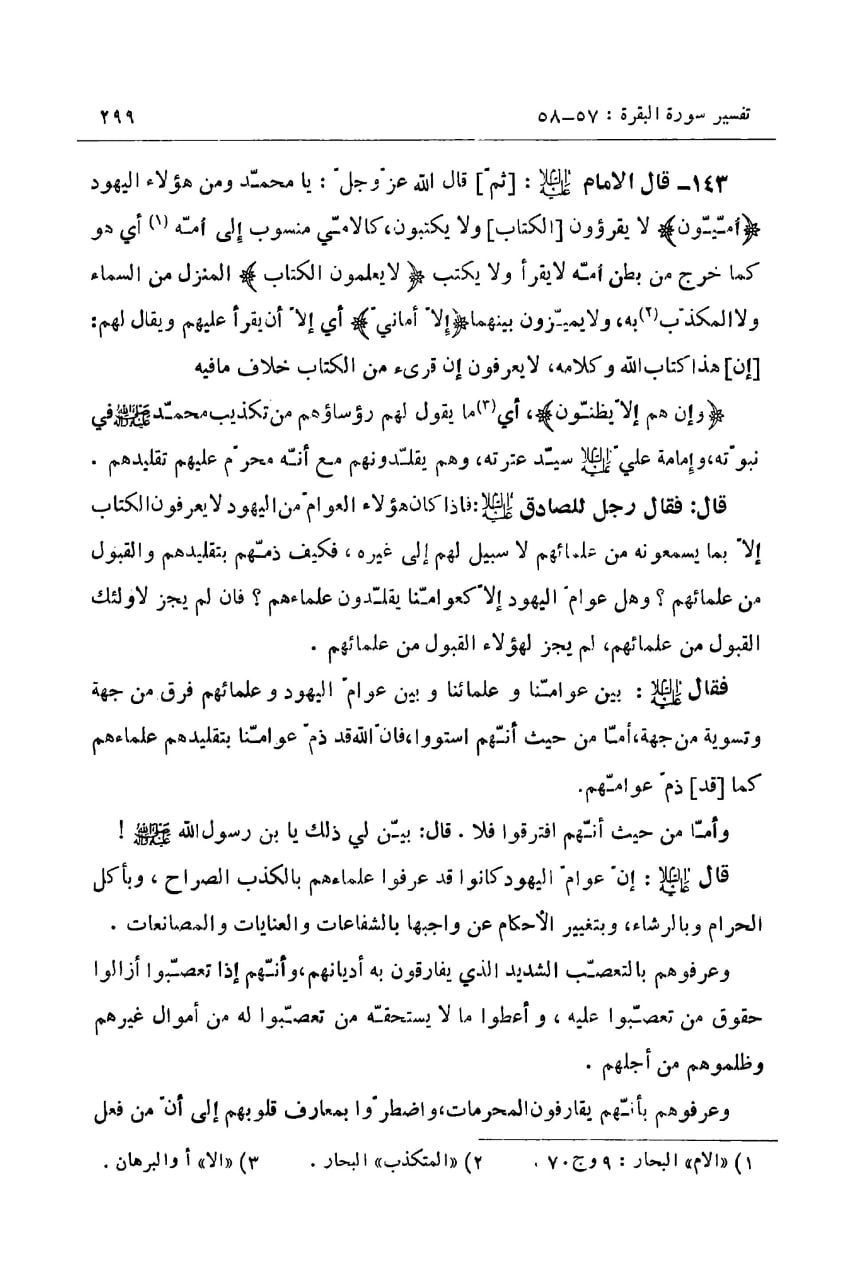 تفسير سورة البقرة : ٥٧-٥٨ ٢٩٩
١٤٣ـ قال الامام عليه السلام : [ثمّ] قال الله عزّ وجلّ : يا محمّد ومن هؤلاء اليهود
﴿أمـّيـّون﴾ لا يقرؤون [الكتاب] ولا يكتبون، كالامّي منسوب إلى أمّه (١) أي هو
كما خرج من بطن أمّه لا يقرأ ولا يكتب ﴿ لا يعلمون الكتاب ﴾ المنزل من السماء
ولا المكذّب(٢)به، ولا يميّزون بينهما ﴿إلاّ أمانيّ﴾ أي إلاّ أن يقرأ عليهم ويقال لهم:
[إن] هذا كتاب الله وكلامه، لا يعرفون إن قرىء من الكتاب خلاف مافيه
﴿وإن هم إلاّ يظنّون﴾، أي(٣)ما يقول لهم رؤساؤهم من تكذيب محمّد ﷺ في
نبوّته، وإمامة عليّ عليه السلام سيّد عترته، وهم يقلّدونهم مع أنّه محرّم عليهم تقليدهم .
قال: فقال رجل للصادق عليه السلام :فاذا كان هؤلاء العوامّ من اليهود لا يعرفون الكتاب
إلاّ بما يسمعونه من علمائهم لا سبيل لهم إلى غيره ، فكيف ذمّهم بتقليدهم والقبول
من علمائهم ؟ وهل عوامّ اليهود إلاّ كعوامّنا يقلّدون علماءهم ؟ فان لم يجز لاولئك
القبول من علمائهم، لم يجز لهؤلاء القبول من علمائهم .
فقال عليه السلام : بين عوامّنا و علمائنا و بين عوامّ اليهود و علمائهم فرق من جهة
وتسوية من جهة، أمّا من حيث أنّهم استووا، فانّ الله قد ذمّ عوامّنا بتقليدهم علماءهم
كما [قد] ذمّ عوامّهم.
وأمّا من حيث أنّهم افترقوا فلا . قال: بيّن لي ذلك يا بن رسول الله ﷺ !
قال عليه السلام : إنّ عوامّ اليهود كانوا قد عرفوا علماءهم بالكذب الصراح ، وبأكل
الحرام وبالرشاء، وبتغيير الأحكام عن واجبها بالشفاعات والعنايات والمصانعات .
وعرفوهم بالتعصّب الشديد الذي يفارقون به أديانهم، وأنّهم إذا تعصّبوا أزالوا
حقوق من تعصّبوا عليه ، و أعطوا ما لا يستحقّه من تعصّبوا له من أموال غيرهم
وظلموهم من أجلهم .
وعرفوهم بأنّهم يقارفون المحرمات، واضطرّوا بمعارف قلوبهم إلى أنّ من فعل
١) «الام» البحار : ٩ وج ٧٠ . ٢) «المتكذب» البحار . ٣) «الا» أ والبرهان .